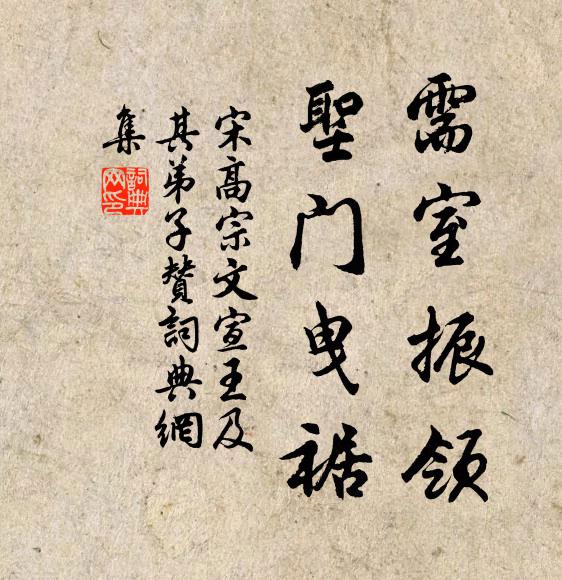 需室振领
聖门曳裾
宋高宗文宣王及
其弟子赞詞典網
集
詞典网印